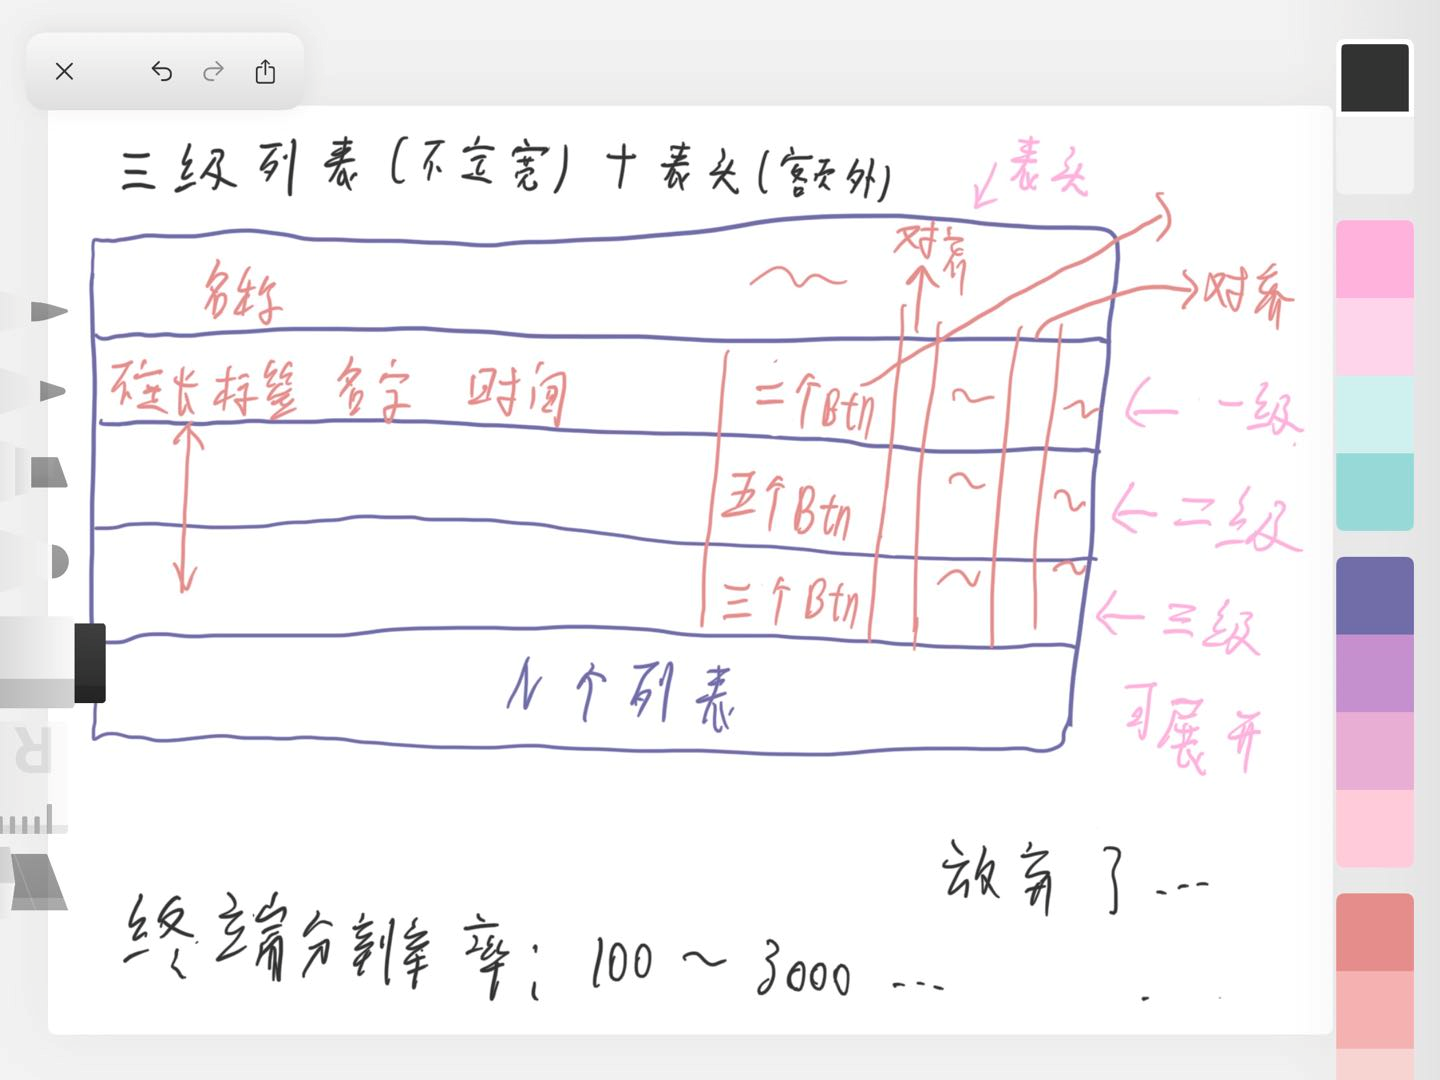 三级列表(不定宽)+表头(额外)
表头
对齐
名称
对齐
不定长标签 名字 时间
二个Btn
一级
五个Btn
二级
三个Btn
三级
N个列表
可展开
放弃了...
终端分割率: 100~3000...